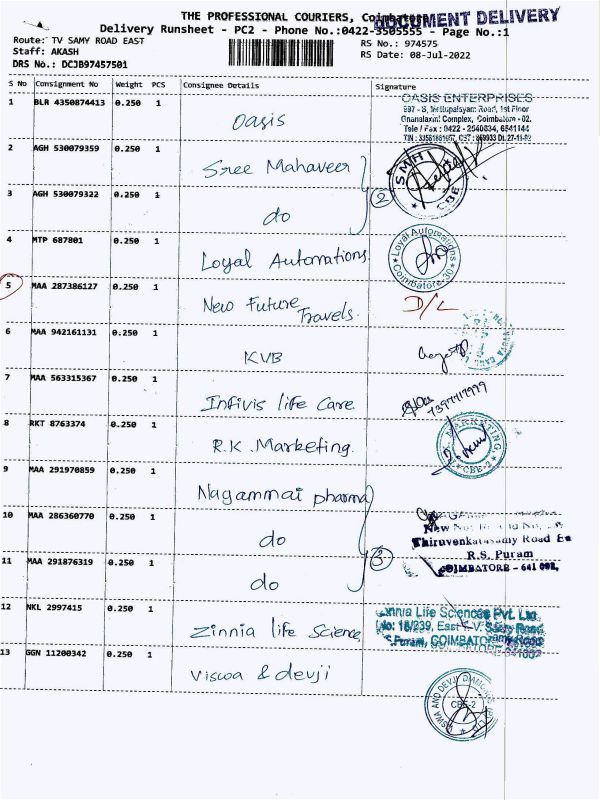 THE PROFESSIONAL COURIERS, Coimbatore
DOCUMENT DELIVERY
Delivery Runsheet - PC2 - Phone No.:0422-3505555 - Page No.:1
Route: TV SAMY ROAD EAST RS No.: 974575
Staff: AKASH RS Date: 08-Jul-2022
DRS No.: DCJB97457501
S No Consignment No Weight PCS Consignee Details Signature
1 BLR 4350874413 0.250 1 Oasis
OASIS ENTERPRISES
Complex, Coimbatore - 02.
Tele / Fax : 0422 - 2540834, 6541144
2 AGH 530079359 0.250 1 Sree Mahaveer
SMH
CBE
3 AGH 530079322 0.250 1 do
2
4 MTP 687801 0.250 1 Loyal Automations
Loyal Automations
Coimbatore-30
5 MAA 287386127 0.250 1 New Future Travels D/L
6 MAA 942161131 0.250 1 KVB
7 MAA 563315367 0.250 1 Infivis life Care
8 RKT 8763374 0.250 1 R.K. Marketing
MARKETING
CBE-2
9 MAA 291970859 0.250 1 Nagammai pharma
10 MAA 286360770 0.250 1 do
New No
Thiruvenkatasamy Road Ea
R.S. Puram
COIMBATORE - 641 002,
11 MAA 291876319 0.250 1 do
3
12 NKL 2997415 0.250 1 Zinnia life Science
Zinnia Life Sciences Pvt. Ltd.
No: 16/239, East T.V. Samy Road
R.S.Puram, COIMBATORE
13 GGN 11200342 0.250 1 Viswa & devji
VISWA AND DEVJI DIAMONDS
CBE-2